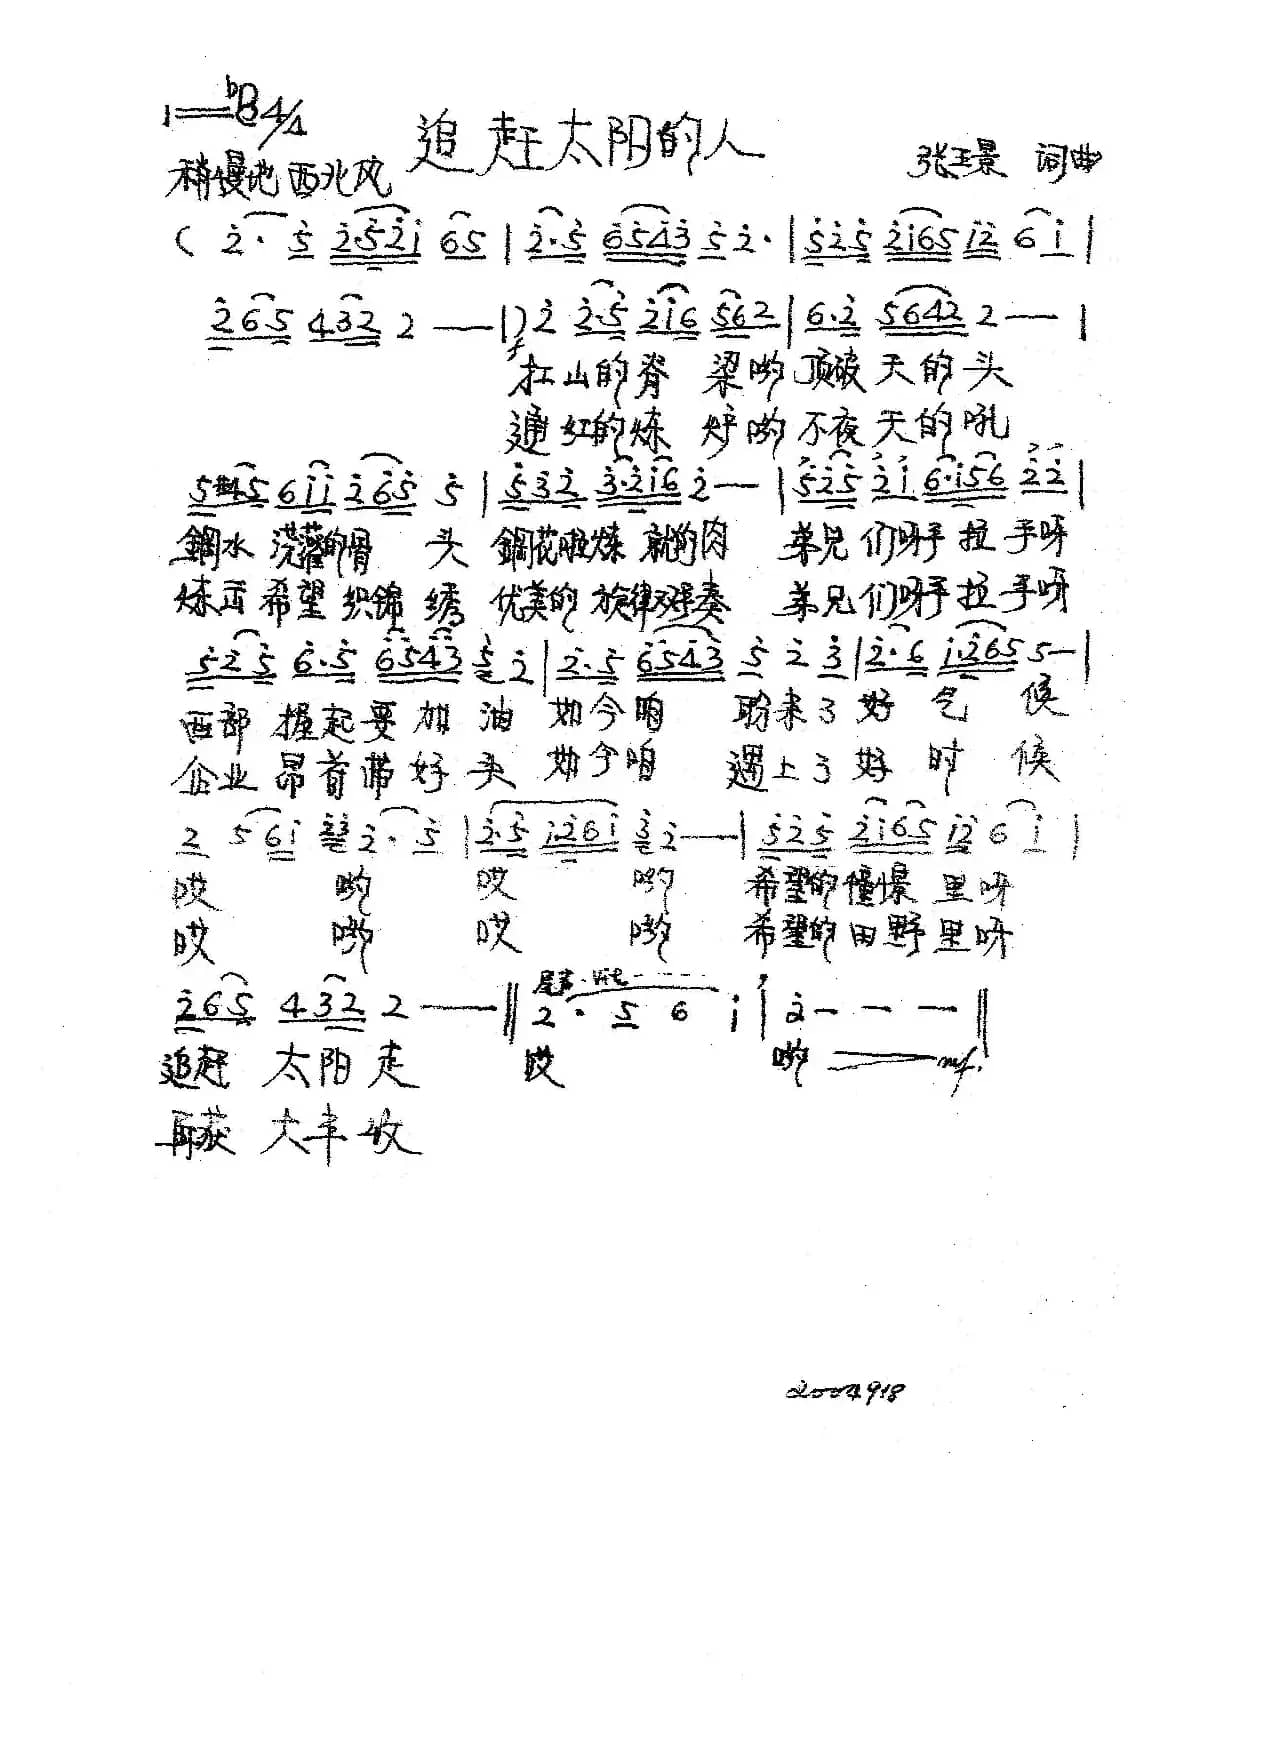 1=bB4/4
追赶太阳的人
稍慢地 西北风
张玉景 词曲
( 2· 5 2521 65 | 2·5 6543 5 2· | 525 2165 12 6 1 |
265 432 2 — |) 2 2·5 216 562 | 6·2 5642 2 — |
f
扛山的脊 梁哟 顶破天的头
通红的炼 炉哟 不夜天的吼
5#45 611 265 5 | 532 3·216 2 — | 525 21 6·156 22 |
鋼水浇灌的骨 头 鋼花啦炼就的肉 弟兄们呀手拉手呀
炼出希望织錦绣 优美的旋律双手奏 弟兄们呀手拉手呀
525 6·5 6543 5 2 | 2·5 6543 5 2 3 | 2·6 1·265 5— |
西部握起要加油 如今咱 盼来了好气候
企业昂首带好头 如今咱 遇上了好时候
2 5 61 33 2· 5 | 2·5 1·261 3 2 — | 525 2165 12 6 1 |
哎 哟 哎 哟 希望的憧憬里呀
哎 哟 哎 哟 希望的田野里呀
265 432 2 — || 2· 5 6 1 | 2 — — — ||
尾声
追赶 太阳走 哎 哟 mf.
再获 大丰收
2004918